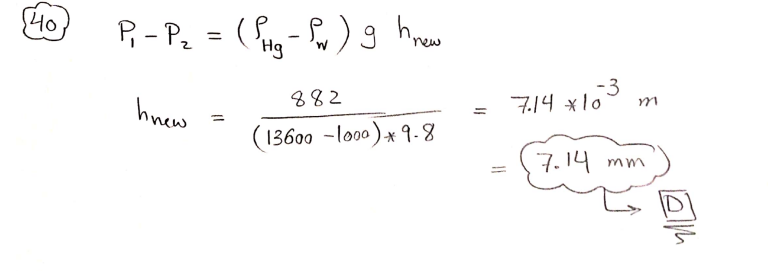 40 P₁ - P₂ = (ρHg - ρw) g hnew
hnew = 882 / (13600 - 1000) * 9.8 = 7.14 * 10⁻³ m
= 7.14 mm
D